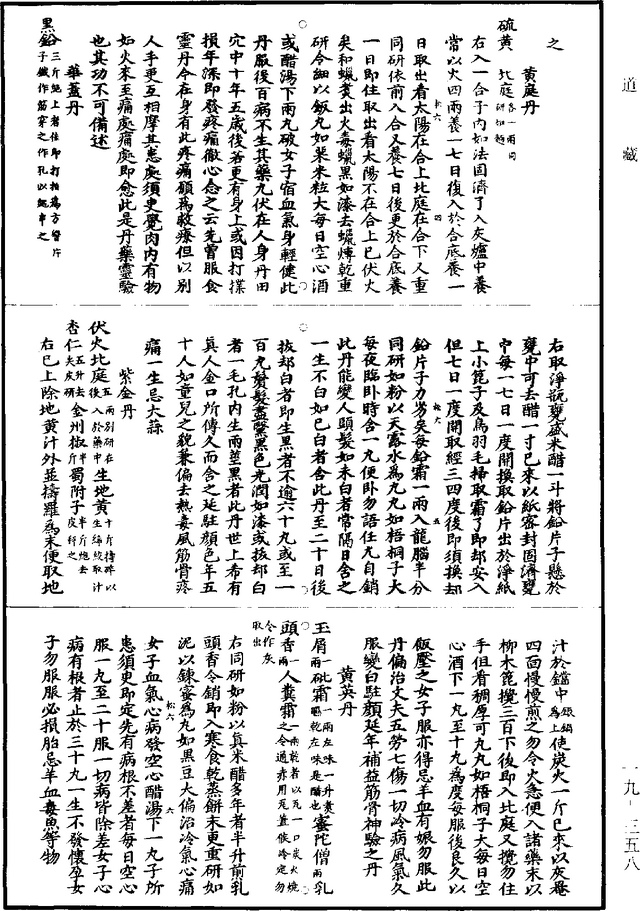 道藏
之
黄庭丹
硫黄 北庭各一兩同研如麵
右入一合子內如法固濟了入灰爐中養
當以火四兩養一七日復入於合底養一
日取出看太陽在合上北庭在合下人重
同研依前入合又養七日後更於合底養
一日即住取出看太陽不在合上已伏火
矣和蠟煑出火毒蠟黑如漆去蠟燁乾重
研令細以飯丸如粟米粒大每日空心酒
或醋湯下兩丸破女子宿血氣身輕健此
丹服後百病不生其藥九伏在人身丹田
宂中十年五歲後若更有身上或因打撲
損年深即發疼痛徹心念之云先曾服食
靈丹令在身有此疼痛願爲救療但以别
人手更互相摩其患處須臾覺肉內有物
如火來至痛處痛處即愈此是丹藥靈驗
也其功不可備述
華蓋丹
黑鉛三斤炮上者佳即打拍爲方響片子鐵作筯穿之作孔以繩串之
右取淨瓶甕盛米醋一斗將鉛片子懸於
甕中可去醋一寸已來以紙密封固濟甕
中每一七日一度開換取鉛片出於淨紙
上小篦子及鳥羽毛掃取霜了即却安入
但七日一度開取經三四度後即須換却
鉛片子力劣矣每鉛霜一兩入龍腦半分
同研如粉以天露水爲丸丸如梧桐子大
每夜臨卧時含一丸便卧勿語任丸自銷
此丹能變人頭髮如未白者常隔日含之
一生不白如已白者含此丹至二十日後
拔却白者即生黑者不逾六十丸或至一
百丸鬚髮盡黳黑色光潤如漆或拔却白
者一毛孔內生兩莖黑者此丹世上希有
真人金口所傳久而含之延駐顔色年五
十人如童兒之貌兼偏去熱毒風筋骨疼
痛一生忌大蒜
紫金丹
伏火北庭五兩别研在後入於藥中 生地黄十斤擣碎以生絹絞取汁
杏仁五升去夫皮頓 金州椒半斤 蜀附子半斤炮去皮秤之
右已上除地黄汁外並擣羅爲末便取地
汁於鐺中銀鍋爲上使炭火一斤已來以灰菴
四面慢慢煎之勿令火急便入諸藥末以
柳木篦攪三百下後即入北庭又攪勿住
手但看稠厚可丸丸如梧桐子大每日空
心酒下一丸至十丸爲度每服後良久以
飯壓之女子服亦得忌羊血有娠勿服此
丹偏治丈夫五勞七傷一切冷病風氣久
服變白駐顔延年補益筋骨神驗之丹
黄英丹
玉屑一兩 砒霜一兩左味一升煑乾左味是醋也 蜜陀僧一兩 乳
頭香一兩 人糞霜一兩乾者以瓦一口炭火燒之令通赤用瓦蓋候冷定勿令作灰取出
右同研如粉以真米醋多年者半升煎乳
頭香令銷即入寒食乾蒸餅末更重研如
泥以鍊蜜爲丸如黑豆大偏治冷氣心痛
女子血氣心病發空心醋湯下一丸子所
患須臾即定先有病根不差者每日空心
服一丸至二十服一切病皆除差女子心
病有根者止於三十九一生不發懷孕女
子勿服服必損胎忌羊血毒魚等物
一九—三五八